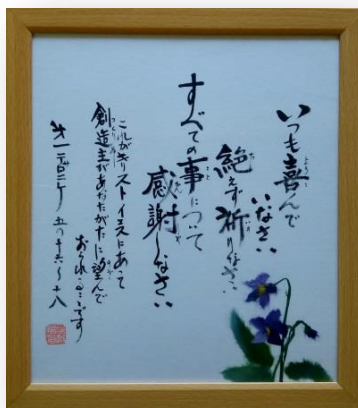 いつも喜んで
いなさい
絶えず祈りなさい
すべての事について
感謝しなさい
これがキリストイエスにあって
創造主があなたがたに望んで
おられることです
オ一テサロニケ 五の十六〜十八